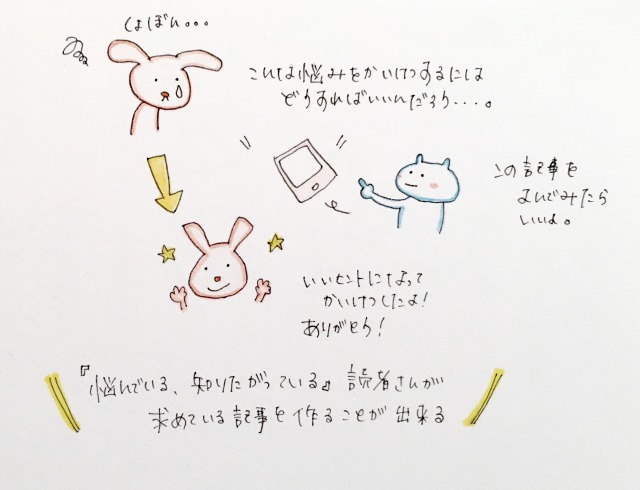 しょぼん。。。
こんな悩みをかいけつするには
どうすればいいんだろう・・・。
この記事を
よんでみたら
いいよ。
いいヒントになって
かいけつしたよ!
ありがとう!
『悩んでいる、知りたがっている』読者さんが
求めている記事を作ることが出来る